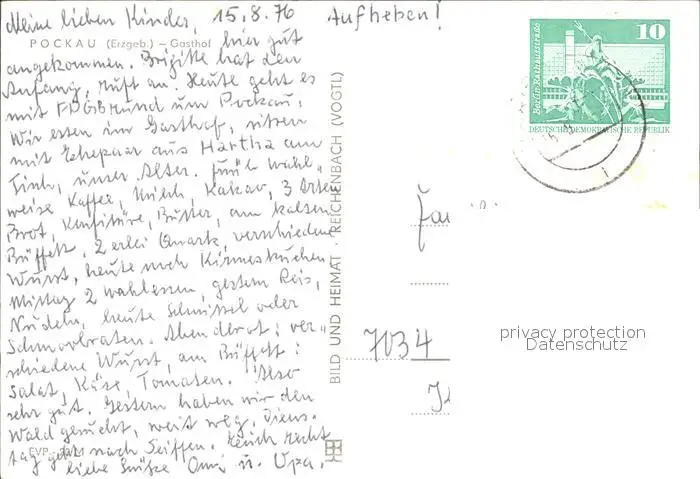 Meine lieben Kinder, 15.8.76 Aufheben!
POCKAU (Erzgeb.) – Gasthof
hier gut
angekommen. Brigitte hat den
Anfang, ruft an. Heute geht es
mit FDGB rund um Pockau.
Wir essen im Gasthof, sitzen
mit Ehepaar aus Hartha am
Tisch, unser Alter. früh wahl-
weise Kaffee, Milch, Kakao, 3 Arten
Brot, Konfitüre, Butter, am kalten
Büffett. 2 erlei Quark, verschiedene
Wurst, heute noch Kirmeskuchen
Mittag 2 wahlessen, gestern Reis,
Nudeln, heute Schnitzel oder
Schmorbraten. Abendbrot: ver-
schiedene Wurst, am Büffett:
Salat, Käse, Tomaten. Also
sehr gut. Gestern haben wir den
Wald gesucht, weit weg. Diens-
tag geht nach Seiffen. Euch recht
liebe Grüße Omi u. Opa.
EVP
BILD UND HEIMAT · REICHENBACH (VOGTL)
Berlin, Rathausstraße
10
DEUTSCHE DEMOKRATISCHE REPUBLIK
7034
privacy protection
Datenschutz